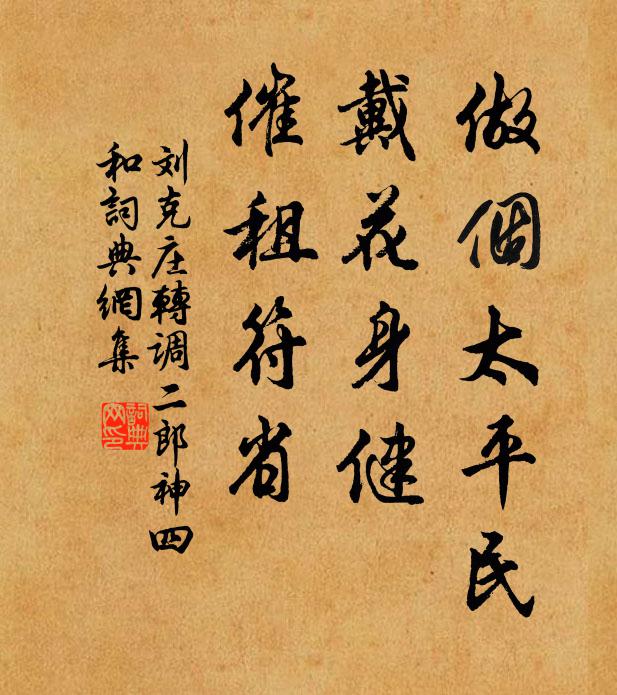 做個太平民
戴花身健
催租符省
刘克庄轉调二郎神四
和詞典網集
詞典網印